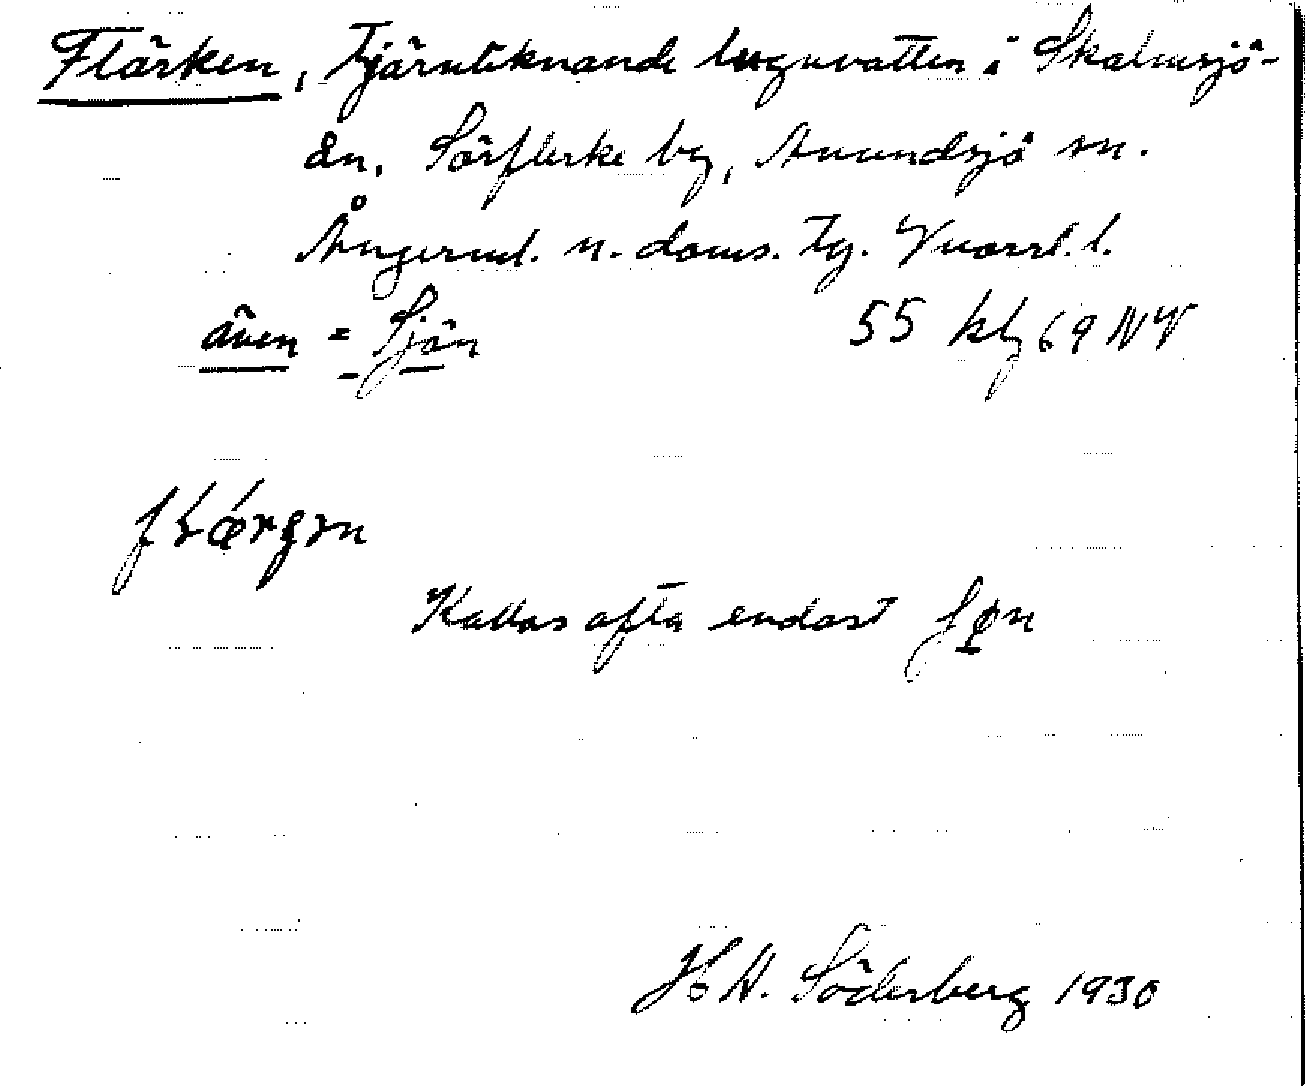 Flärken, Tjärnliknande lugnvatten i Skalmsjö-
ån, Sörflärke by, Anundsjö sn.
Ångerml. n. doms. tg. Västernorrl. l.
även = Sjön
55 kbl 69 NV
Kallas ofta endast
H W. Söderberg 1930